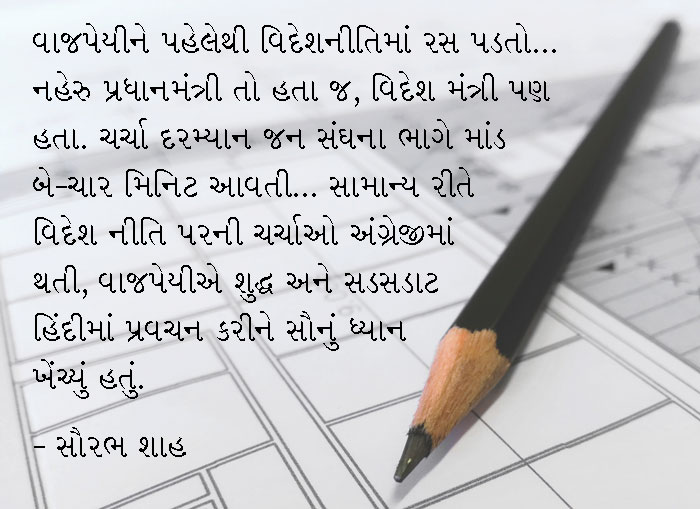 વાજપેયીને પહેલેથી વિદેશનીતિમાં રસ પડતો...
નહેરુ પ્રધાનમંત્રી તો હતા જ, વિદેશ મંત્રી પણ
હતા. ચર્ચા દરમ્યાન જન સંઘના ભાગે માંડ
બે-ચાર મિનિટ આવતી... સામાન્ય રીતે
વિદેશ નીતિ પરની ચર્ચાઓ અંગ્રેજીમાં
થતી, વાજપેયીએ શુદ્ધ અને સડસડાટ
હિંદીમાં પ્રવચન કરીને સૌનું ધ્યાન
ખેંચ્યું હતું.
- સૌરભ શાહ